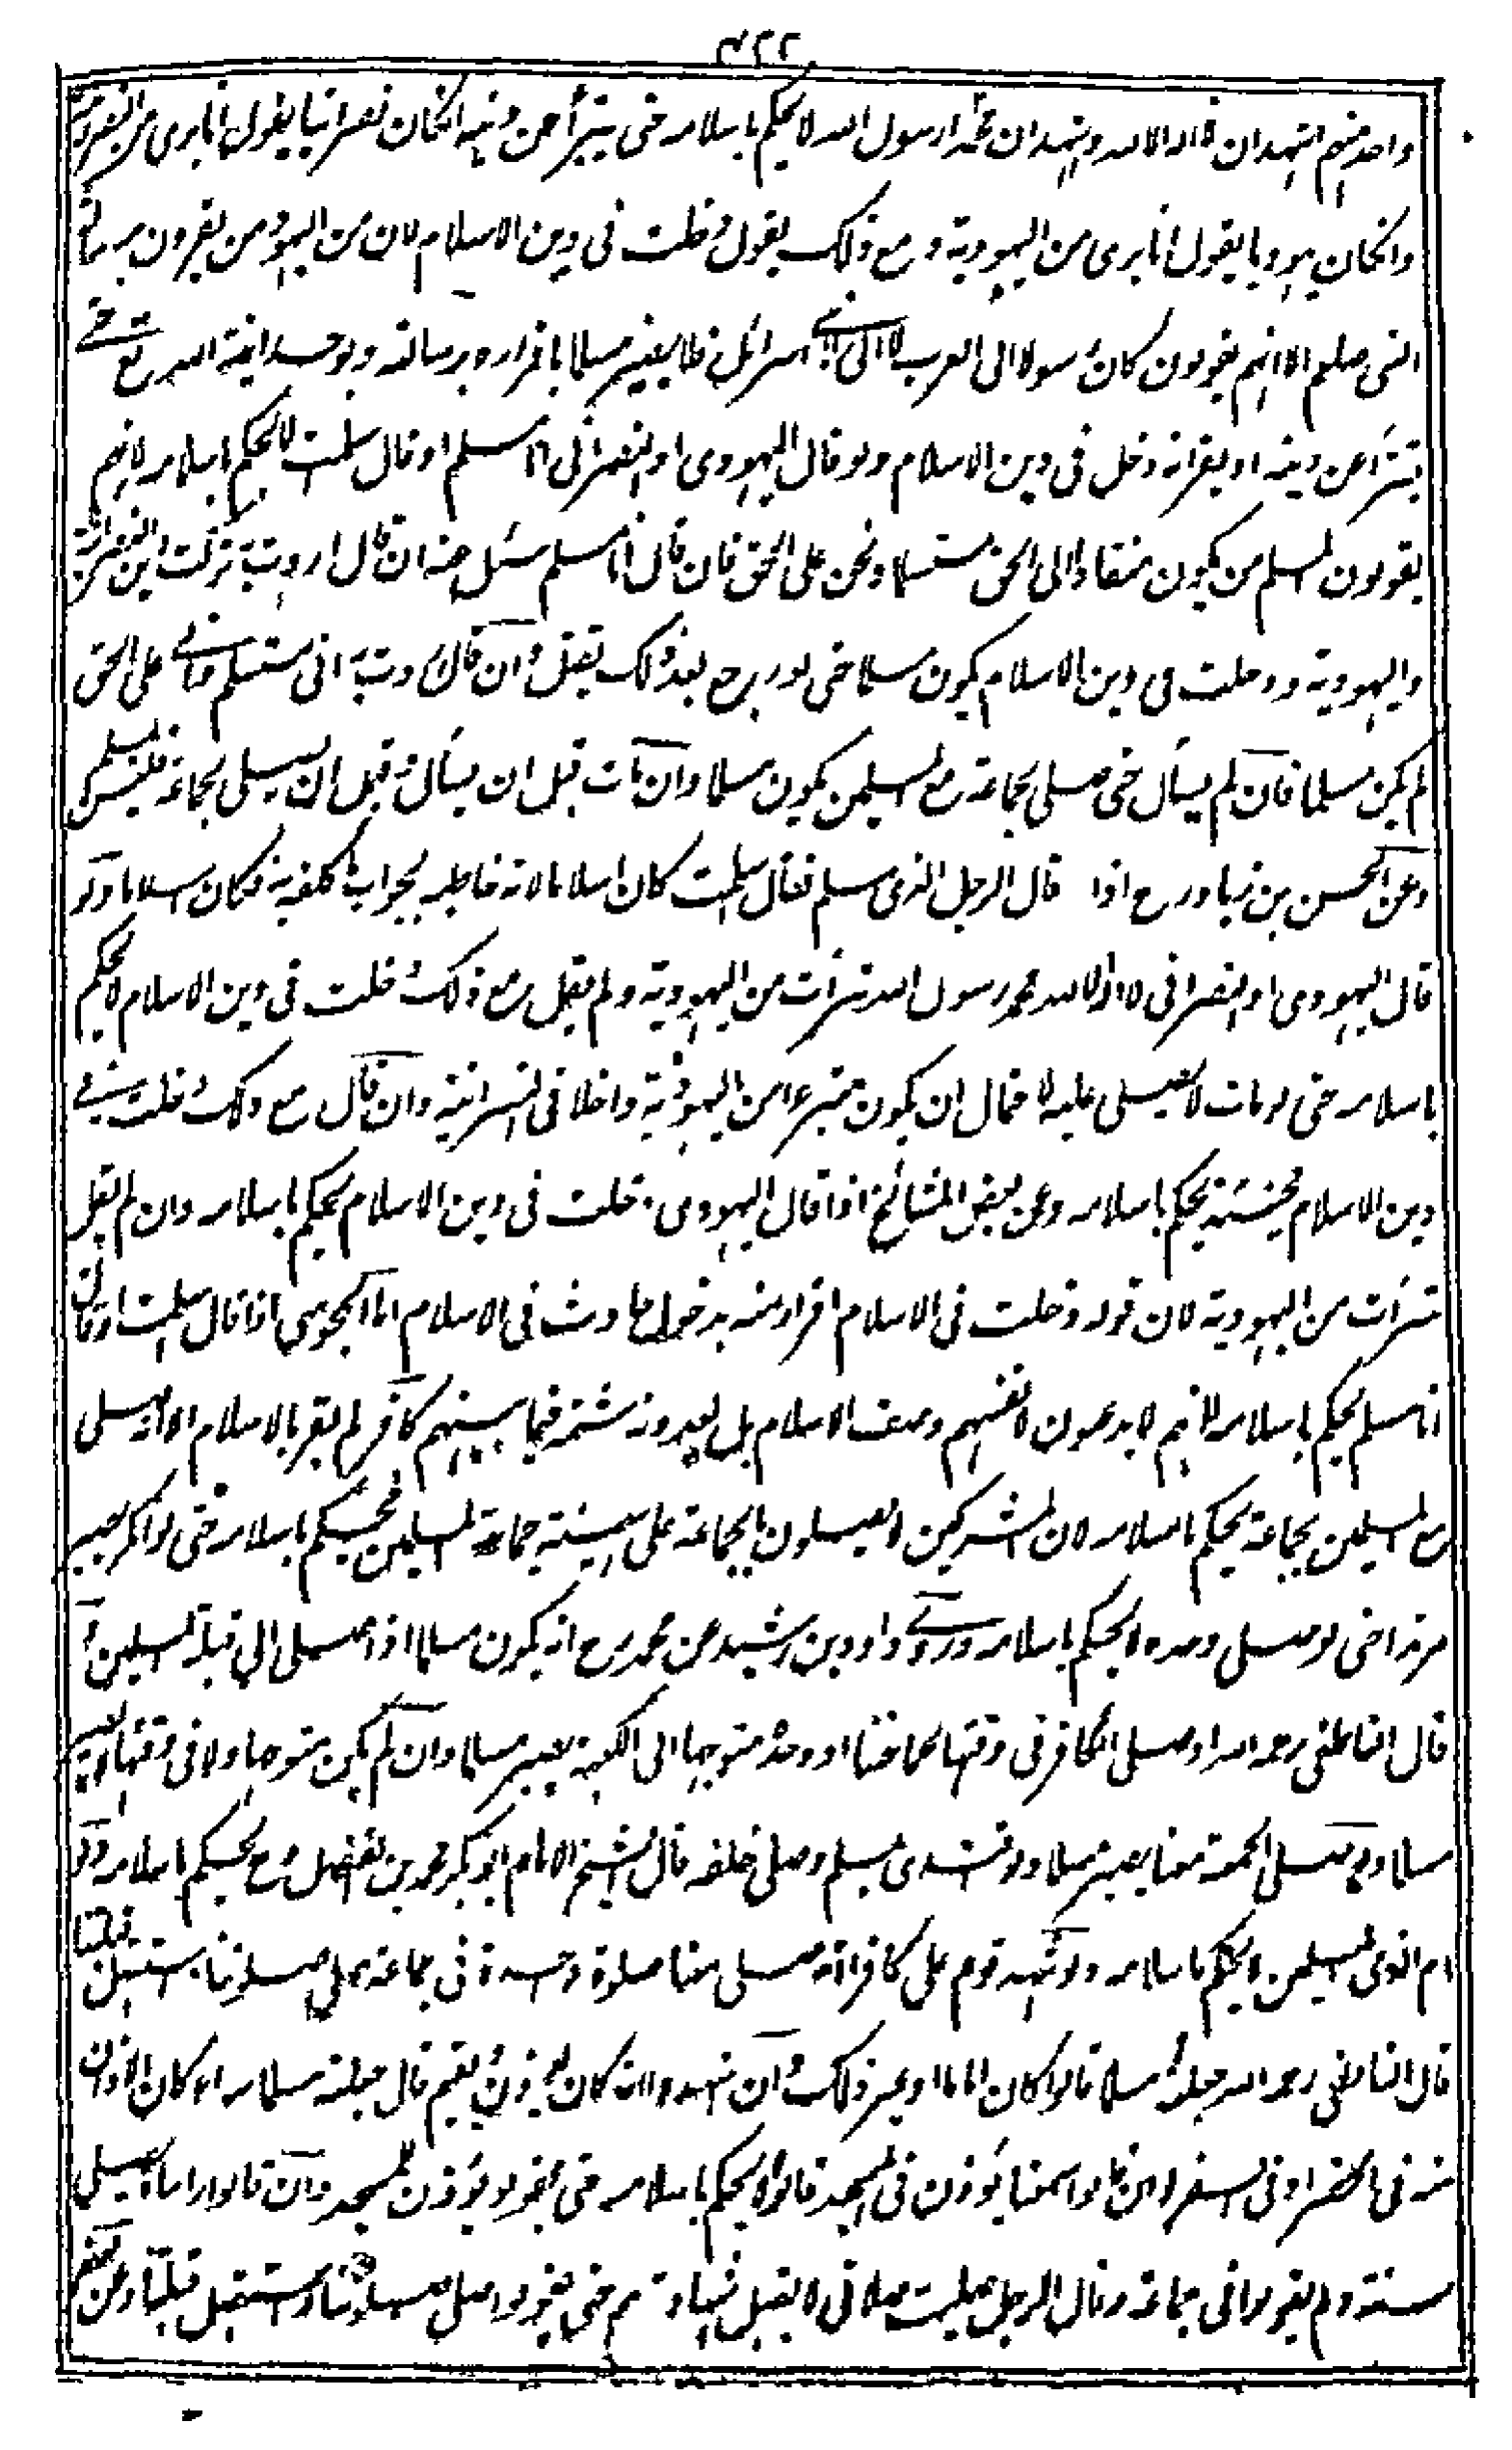 ٤٢٢
واحد منهم اشهد ان لا اله الا الله واشهد ان محمدا رسول الله لا يحكم باسلامه حتى يتبرأ عن دينه انكان نصرانيا يقول انا برى من النصرانية
وانكان يهوديا يقول انا برى من اليهودية ومع ذلك يقول دخلت فى دين الاسلام لان من اليهود من يقرون برسالة
النبى صلعم الا انهم يقولون كان رسولا الى العرب لا الى بنى اسرائيل فلا يصير مسلما باقراره برسالته وبوحدانية الله تع حتى
يتبرأ عن دينه او يقر انه دخل فى دين الاسلام ولو قال اليهودى او النصرانى انا مسلم او قال اسلمت لا يحكم باسلامه لانهم
يقولون المسلم من يكون منقادا الى الحق مستسلما ونحن على الحق فان قال انا مسلم سئل عنه ان قال اردت به تركت دين النصرانية
واليهودية ودخلت فى دين الاسلام يكون مسلما حتى لو رجع بعد ذلك يقتل وان قال اردت به انى مستسلم فانى على الحق
لم يكن مسلما فان لم يسأل حتى صلى بجماعة مع المسلمين يكون مسلما وان مات قبل ان يسأل وقبل ان يصلى بجماعة فليس بمسلم
وعن الحسن بن زياد رح اذا قال الرجل الذمى اسلم فقال اسلمت كان اسلاما لانه خاطبه بجواب ما كلفه به فكان اسلاما ولو
قال اليهودى او النصرانى لا اله الا الله محمد رسول الله تبرأت من اليهودية ولم يقل مع ذلك دخلت فى دين الاسلام لا يحكم
باسلامه حتى لو مات لا يصلى عليه لاحتمال ان يكون متبرءا من اليهودية داخلا فى النصرانية وان قال مع ذلك دخلت فى
دين الاسلام فحينئذ يحكم باسلامه وعن بعض المشائخ اذا قال اليهودى دخلت فى دين الاسلام يحكم باسلامه وان لم يقل
تبرأت من اليهودية لان قوله دخلت فى الاسلام اقرار منه بدخول حادث فى الاسلام اما المجوسى اذا قال اسلمت او قال
انا مسلم يحكم باسلامه لانهم لا يدعون لانفسهم وصف الاسلام بل يعدونه شتمة فيما بينهم كافر لم يقر بالاسلام الا انه صلى
مع المسلمين بجماعة يحكم باسلامه لان المشركين لا يصلون بالجماعة على هيئة جماعة المسلمين فيحكم باسلامه حتى لو انكر يصير
مرتدا حتى لو صلى وحده لا يحكم باسلامه وروى داود بن رشيد عن محمد رح انه يكون مسلما اذا صلى الى قبلة المسلمين
قال الناطفى رحمه الله لو صلى الكافر فى وقتها كما هنا او وحده متوجها الى الكعبة يصير مسلما وان لم يكن متوجها ولا فى وقتها لا يصير
مسلما ولو صلى الجمعة معنا يصير مسلما ولو اقتدى بمسلم وصلى خلفه قال الشيخ الامام ابو بكر محمد بن الفضل رح يحكم باسلامه ولو
ام الذمى المسلمين لا يحكم باسلامه ولو شهد قوم على كافر انه صلى معنا صلوة واحدة فى جماعة على صلوتنا يستقبل قبلتنا
قال الناطفى رحمه الله جعلته مسلما قالوا كان اماما او غير ذلك وان شهدوا انه كان يؤذن ويقيم قال جعلته مسلما سواء كان الاذان
منه فى الحضر او فى السفر وان قالوا سمعنا يؤذن فى المسجد قالوا لا يحكم باسلامه حتى يقولوا يؤذن للمسجد وان قالوا رايناه يصلى
سنة ولم يقولوا فى جماعة وقال الرجل صليت صلاتى لا يقبل شهادتهم حتى يقولوا صلى صلوتنا واستقبل قبلتنا وعن